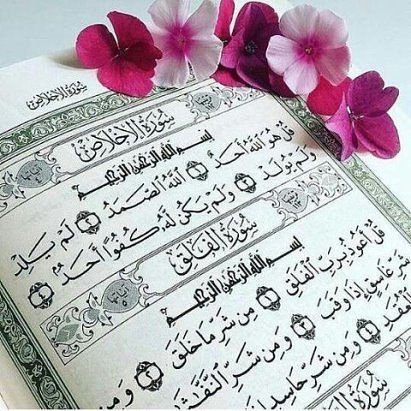 سُورَةُ الإِخْلَاصِ
سُورَةُ الإِخْلَاصِ
بِسْمِ اللَّهِ الرَّحْمَٰنِ الرَّحِيمِ
قُلْ هُوَ اللَّهُ أَحَدٌ ١ اللَّهُ الصَّمَدُ ٢ لَمْ يَلِدْ
وَلَمْ يُولَدْ ٣ وَلَمْ يَكُن لَّهُ كُفُوًا أَحَدٌ ٤
سُورَةُ الْفَلَقِ
بِسْمِ اللَّهِ الرَّحْمَٰنِ الرَّحِيمِ
قُلْ أَعُوذُ بِرَبِّ الْفَلَقِ ١ مِن شَرِّ مَا خَلَقَ ٢ وَمِن
شَرِّ غَاسِقٍ إِذَا وَقَبَ ٣ وَمِن شَرِّ
وَمِن شَرِّ حَاسِدٍ